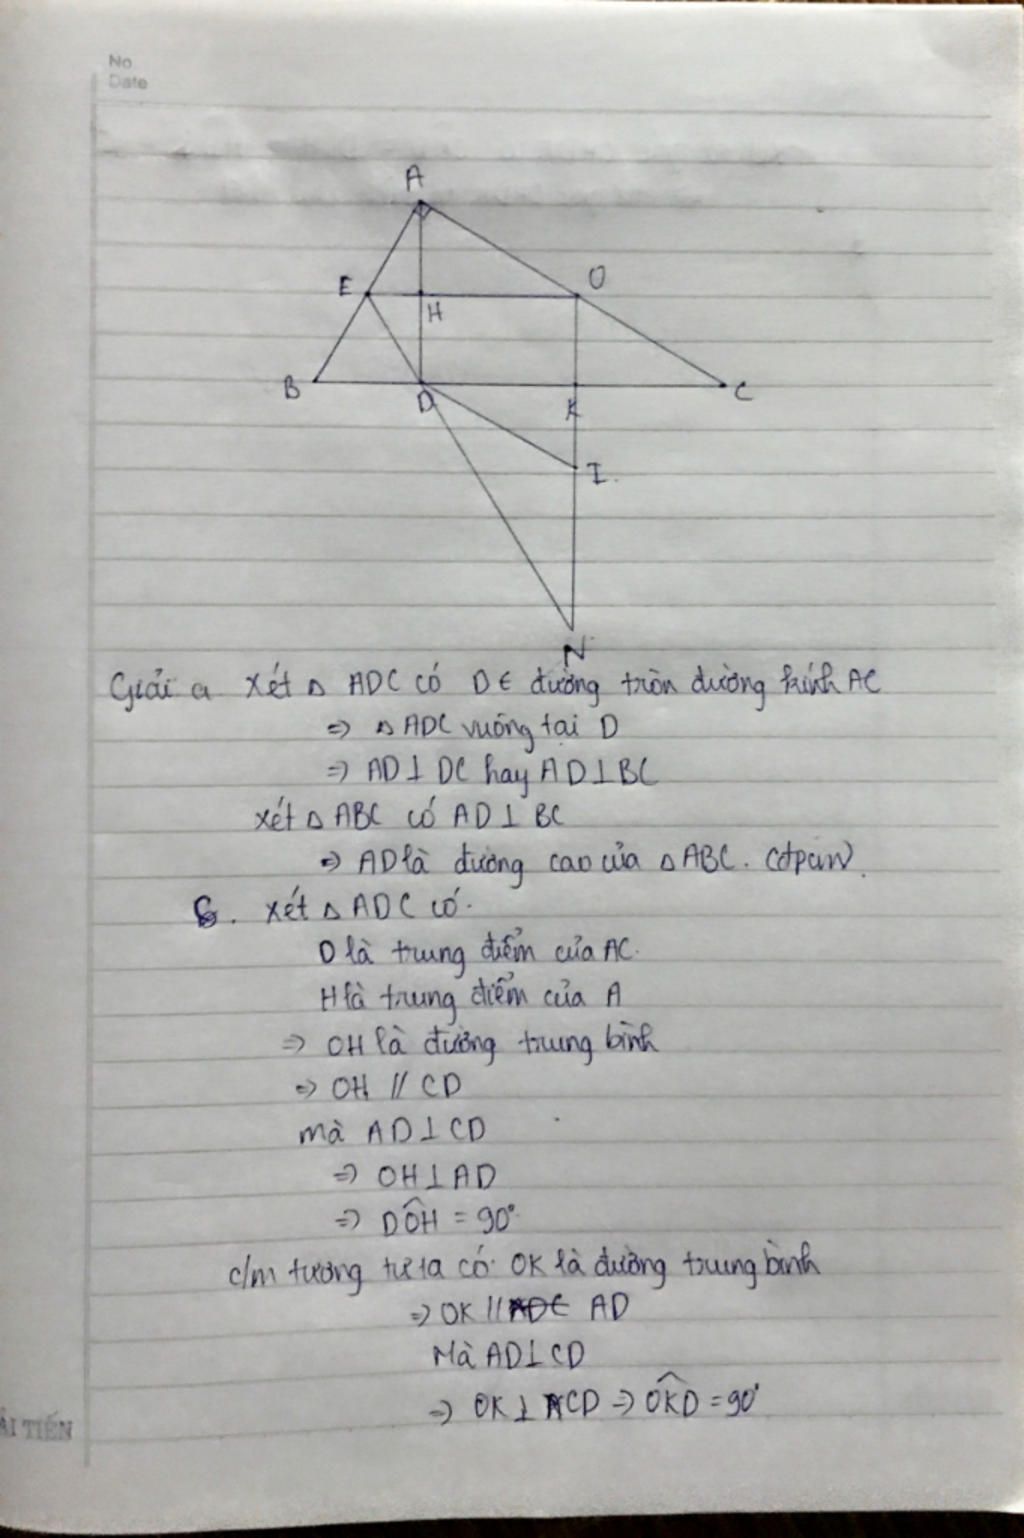 No
Date
A
E
O
H
B
D
K
C
I.
N
Giải a Xét △ ADC có D∈ đường tròn đường kính AC
=> △ ADC vuông tại D
=> AD⊥ DC hay AD⊥BC
xét △ ABC có AD⊥ BC
=> AD là đường cao của △ABC. (đpcm).
b. xét △ ADC có.
O là trung điểm của AC.
H là trung điểm của A
=> OH là đường trung bình
=> OH // CD
mà AD⊥CD
=> OH⊥AD
=> DOH = 90°
c/m tương tự ta có: OK là đường trung bình
=> OK // AD
Mà AD⊥CD
=> OK⊥ CD => OKD = 90°
ẢI TIẾN